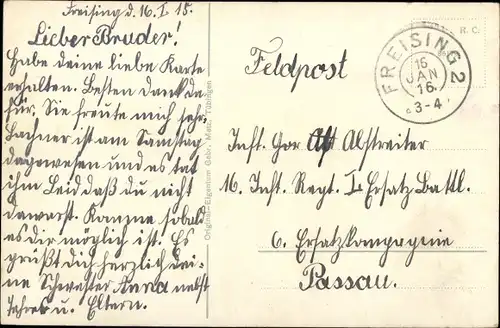 Freising d. 16. I. 15.
Lieber Bruder!
Habe deine liebe Karte
erhalten. Besten Dank da-
für. Sie freute mich sehr.
Lachner ist am Samstag
dagewesen und es tat
ihm Leid daß du nicht
dawarst. Komme sobald
es dir möglich ist. Es
grüßt dich herzlich dei-
ne Schwester Anna nebst
u. Eltern.
Original-Eigentum Gebr. Metz, Tübingen.
Feldpost
R. C.
FREISING 2
16
JAN
16.
3-4
Inft. Abstreiter
16. Inft. Regt. I. Ersatz Battl.
6. Ersatzkompagnie
Passau.